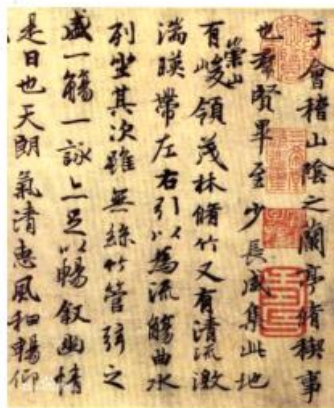 于會稽山陰之蘭亭脩稧事
也羣賢畢至少長咸集此地
有崇山峻領茂林脩竹又有清流激
湍暎帶左右引以為流觴曲水
列坐其次雖無絲竹管弦之
盛一觴一詠亦足以暢叙幽情
是日也天朗氣清惠風和暢仰